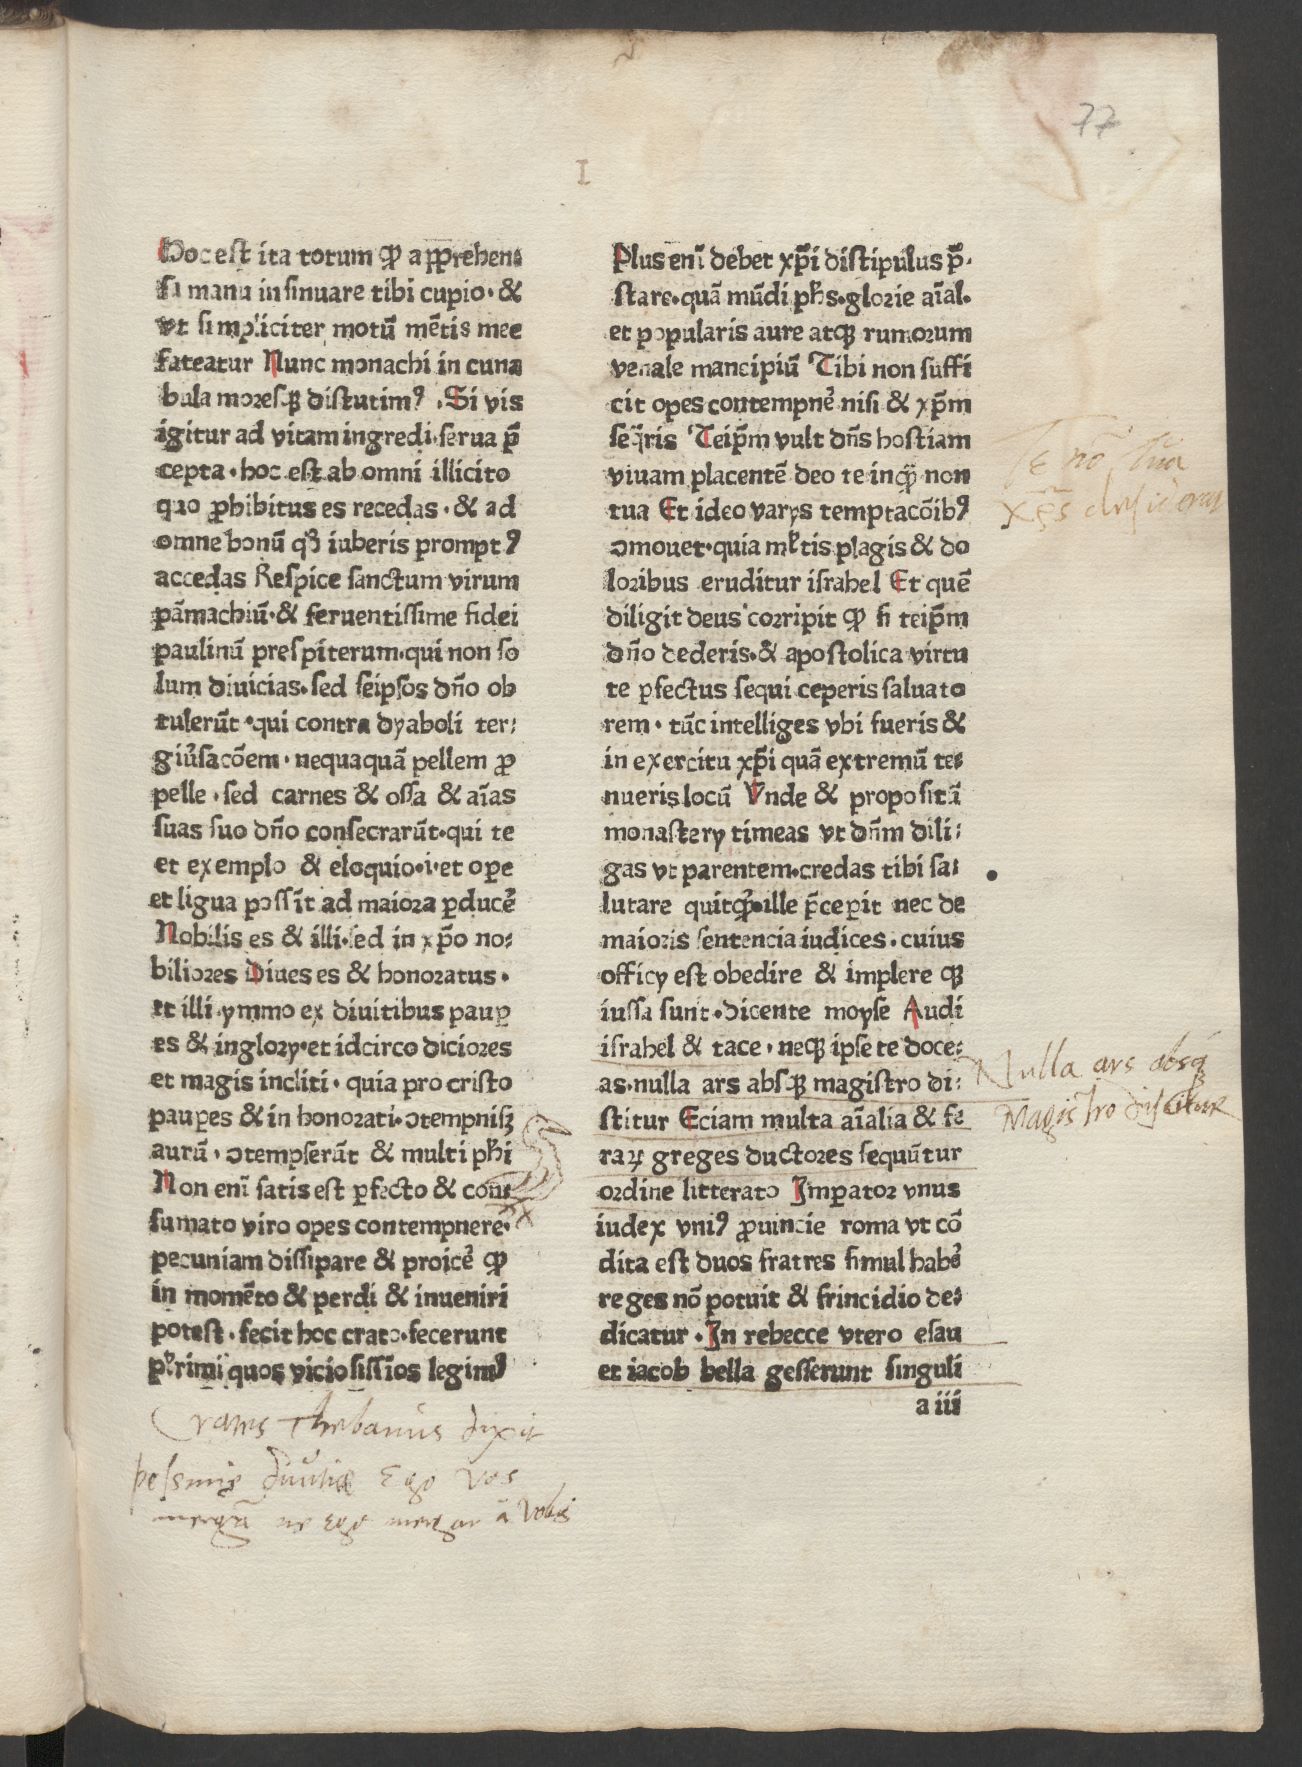 77
I
Hoc est ita totum qͥ apprehen⸗
sa manu insinuare tibi cupio · &
vt simpliciter motū mētis mee
fateatur Nunc monachi in cuna
bula moresqꝫ distutimꝰ · Si vis
igitur ad vitam ingredi · serua p̄
cepta · hoc est ab omni illicito
quo ꝓhibitus es recedas · & ad
omne bonū qꝫ iuberis promptꝰ
accedas Respice sanctum virum
pāmachiū · & feruentissime fidei
paulinū prespiterum · qui non so
lum diuicias · sed seipsos dn̄o ob
tulerūt · qui contra dyaboli ter⸗
giu̓sacōem · nequaquā pellem ꝓ
pelle · sed carnes & ossa & aīas
suas suo dn̄o consecrarūt · qui te
et exemplo & eloquio · i · et opere
et ligua possīt ad maiora ꝑducē
Nobilis es & illi · sed in xp̄o no⸗
biliores Diues es & honoratus ·
et illi · ymmo ex diuitibus pauꝑ
es & inglorij · et idcirco diciores
et magis incliti · quia pro cristo
pauꝑes & in honorati · ꝯtempnisꝫ
aurū · ꝯtempserūt & multi pħi
Non eni satis est ꝑfecto & con⸗
sumato viro opes contempnere ·
pecuniam dissipare & proicē qͥ
in momēto & perdi & inueniri
potest · fecit hoc crato · fecerunt
plꝛimi quos viciosissīos legimꝰ
Crates Thebanus dixit
pessimę diuitię Ego vos
mergā ne ego mergar à vobis
Plus enī debet xp̄i distipulus p̄⸗
stare · quā mūdi pħs · glorie aīal ·
et popularis aure atqꝫ rumorum
venale mancipiū Tibi non suffi
cit opes contempnē nisi & xp̄m
seq̄ris Teip̄m vult dn̄s hostiam
viuam placentē deo te inqͣ non
tua Et ideo varijs temptacōibꝰ
ꝯmouet · quia mltis plagis & do
loribus eruditur israhel Et quē
diligit deus corripit qͥ si teip̄m
dn̄o dederis · & apostolica virtu
te ꝑfectus sequi ceperis saluato
rem · tūc intelliges vbi fueris &
in exercitu xp̄i quā extremū te⸗
nueris locū Vnde & propositū
monasterij timeas vt dn̄m dili⸗
gas vt parentem · credas tibi sa⸗
lutare quitqͥ · ille p̄ceperit nec de
maioris sentencia iudices · cuius
officij est obedire & implere qꝫ
iussa sunt · dicente moyse Audi
israhel & tace · neqꝫ ipse te doce⸗
as · nulla ars absqꝫ magistro di⸗
stitur Eciam multa aīalia & fe
raꝝ greges ductores sequūtur
ordine litterato Imperator vnus
iudex vniꝰ ꝓuincie roma vt cō
dita est duos fratres simul habē
reges nō potuit & frincidio de⸗
dicatur · In rebecce vtero esau
et iacob bella gesserunt singuli
a iii
Te nō tua
xp̄s desiderat
Nulla ars absqꝫ
Magistro discitur